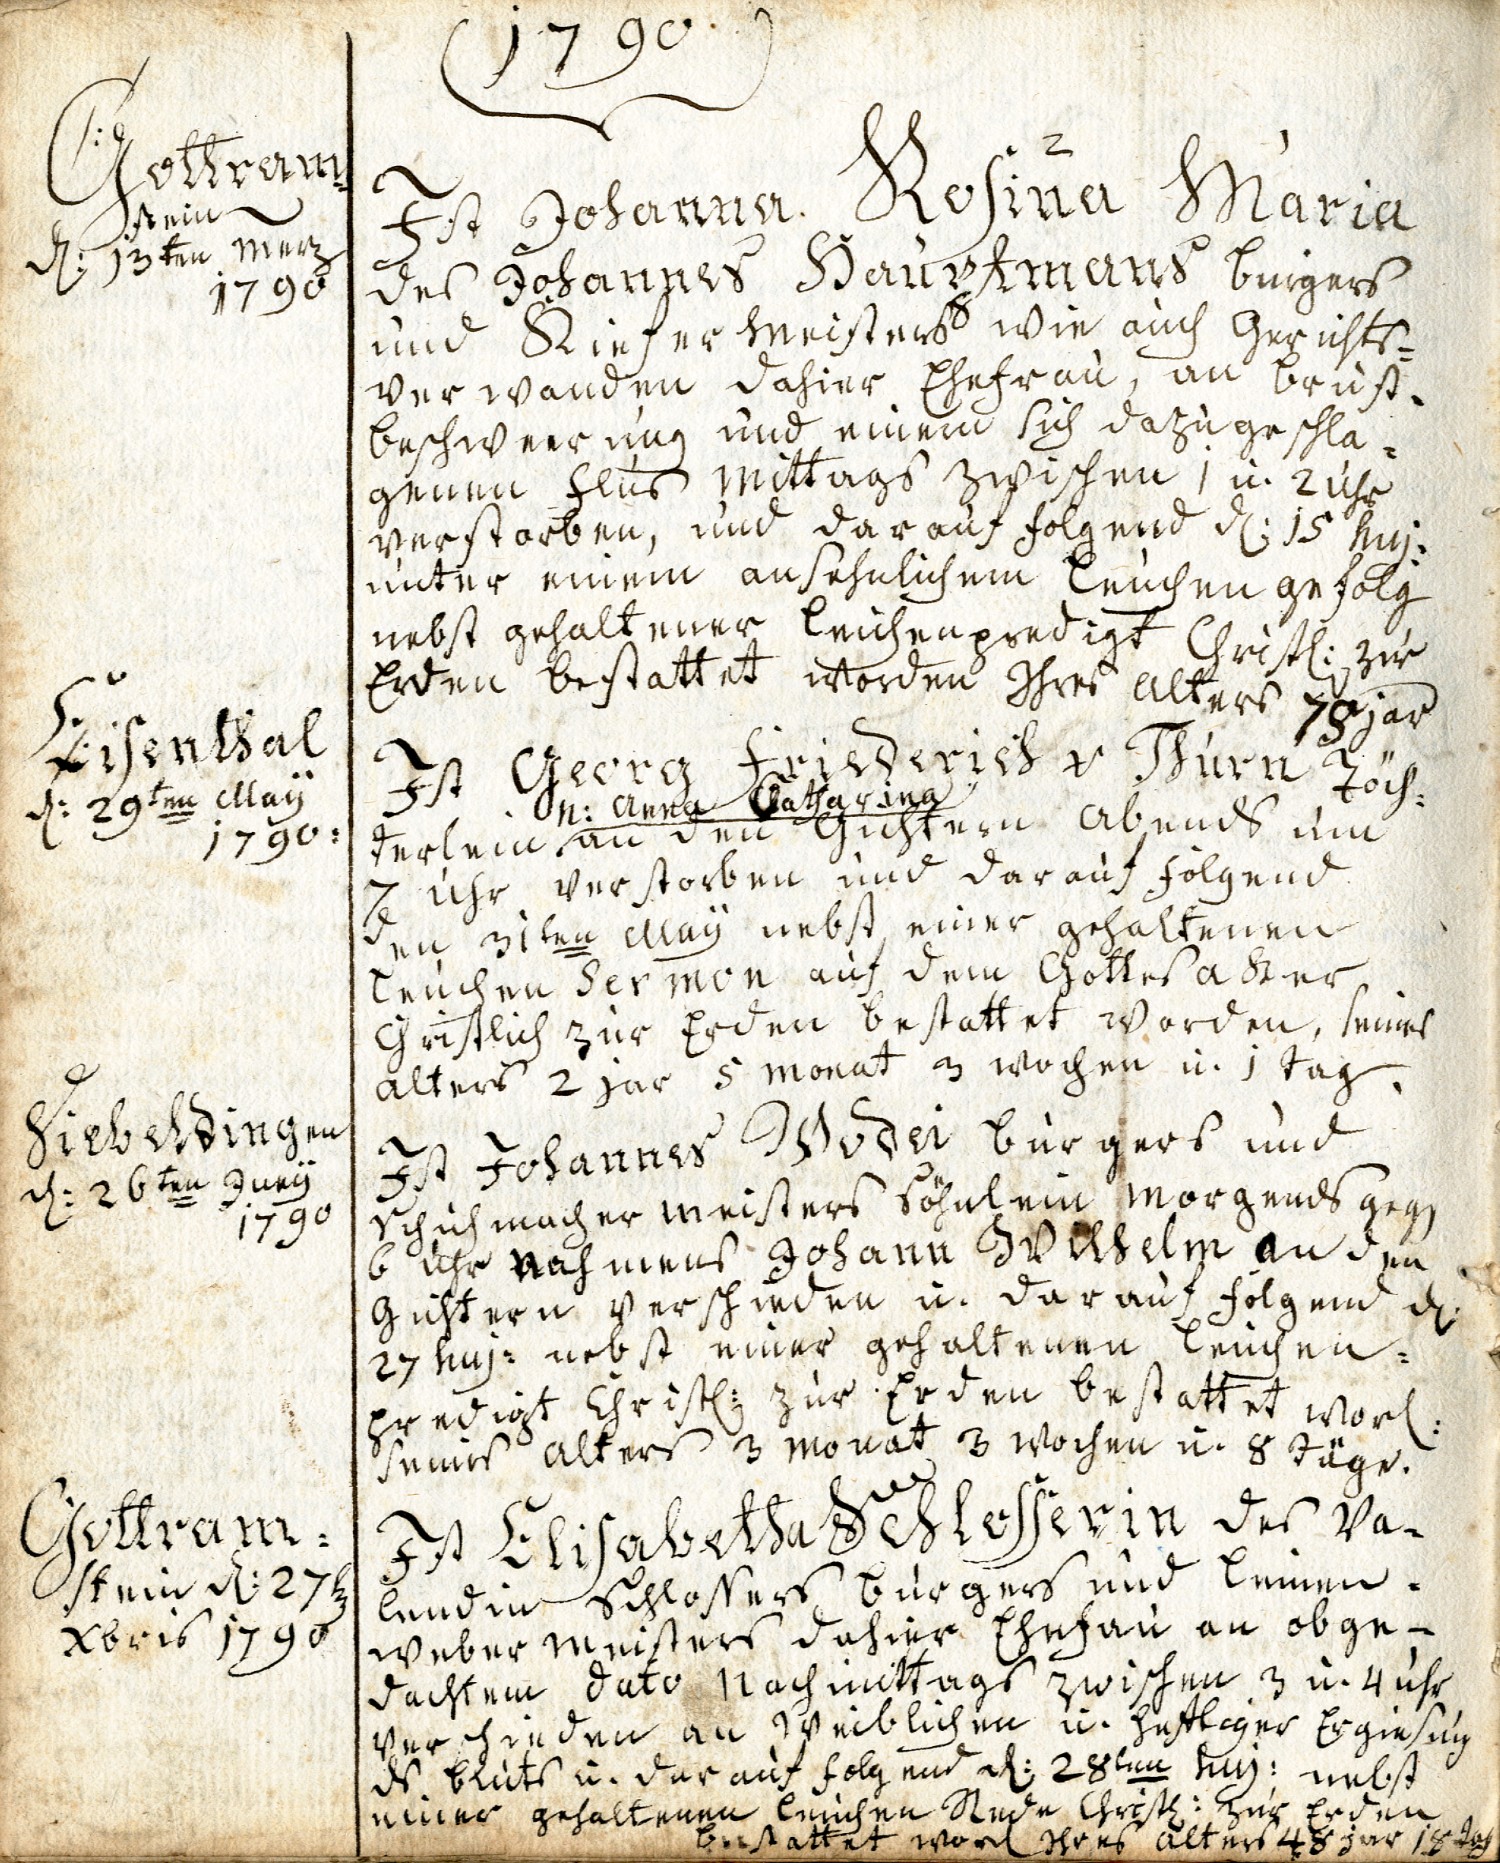 1790.
Gottram=
stein
d: 13ten Merz
1790
Ist Johanna Rosina Maria
des Johannes Hauptmans burgers
und Kiefer Meisters wie auch Gerichts=
verwanden dahier Ehefrau, an brust=
beschweerung und einem sich dazugeschla=
genen Flus Mittags zwischen 1 u. 2 Uhr
verstorben, und darauf folgend d: 15 huj:
unter einem ansehnlichem Leichengefolg
nebst gehaltener Leichenpredigt Christl: zur
Erden bestattet worden Ihres alters 78 jar
Eisenthal
d: 29ten Maÿ
1790:
Ist Georg Friederich Thurn Töch=
N: Anna Catharina
terlein an den Gichtern Abends um
7 Uhr verstorben und darauf folgend
den 31ten Maÿ nebst einer gehaltenen
Leichen Sermon auf dem Gottesaker
Christlich zur Erden bestattet worden, seines
alters 2 jar 5 Monat 3 wochen u. 1 tag.
Siebeldingen
d: 26ten Junÿ
1790
Ist Johannes Wodei burgers und
Schuhmacher meisters Söhnlein Morgends geg
6 Uhr Nahmens Johann Wilhelm an den
Gichtern verschieden u. darauf folgend d:
27 huj: nebst einer gehaltenen Leichen=
predigt Christl: zur Erden bestattet word:
seines Alters 3 Monat 3 wochen u. 8 täge.
Gottram=
stein d: 27
Xbris 1790
Ist Elisabetha Schlosserin des Va=
lendin Schlossers burgers und Leinen=
weber meisters dahier Ehefau an obge=
dachtem dato Nachmittags zwischen 3 u. 4 Uhr
verschieden an Weiblichen u. heftiger Ergiesung
ds bluts u. darauf folgend d: 28ten huj: nebst
einer gehaltenen Leichen Rede Christl: zur Erden
bestattet word Ihres alters 48 jar 18 tag